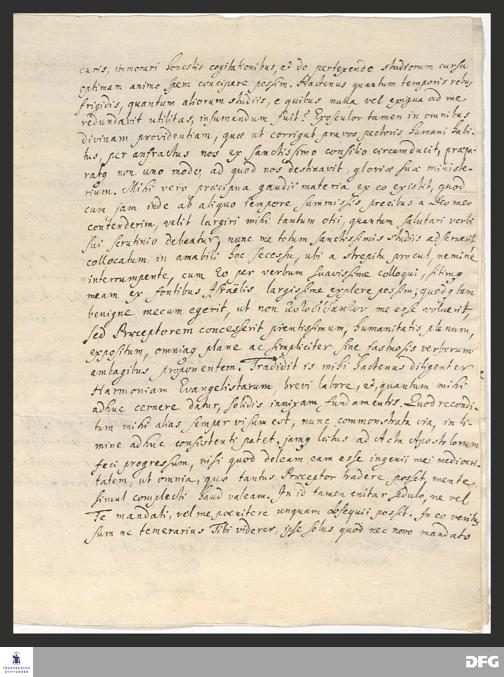 curis, immorari honestis cogitationibus, et de pertexendo studiorum cursu
optimam animo spem concipere possim. Hactenus quantum temporis rebus
frigidis, quantum aliorum studiis, e quibus nulla vel exigua ad me
redundavit utilitas, insumendum fuit? Exosculor tamen in omnibus
divinam providentiam, quæ ut corrigat pravos pectoris humani habi-
tus, per anfractus nos ex sanctissimo consilio circumducit, præpa-
ratq non uno modo, ad quod nos destinavit, gloriæ suæ ministe-
rium. Mihi vero præcipua gaudii materia ex eo existit, quod
cum jam inde ab aliquo tempore summissis precibus a Deo meo
contenderim, velit largiri mihi tantum otii, quantum salutari verbi
sui scrutinio debeatur, nunc me totum sanctissimis studiis adseruerit,
collocatum in amabili hoc secessu, uti a strepitu procul, nemine
interrumpente, cum Eo per verbum suavissime colloqui, sitimq
meam ex fontibus Israëlis largissime explere possim; quodq tam
benigne mecum egerit, ut non me esse voluerit,
sed Præceptorem concesserit pientissimum, humanitatis plenum,
expositum, omniaq plane ac simpliciter sine fastuosis verborum
ambagibus proponentem. Tradidit is mihi hactenus diligenter
Harmoniam Evangelistarum brevi labore, et, quantum mihi
adhuc cernere datur, solidis innixam fundamentis. Quod recondi-
tum mihi alias semper visum est, nunc commonstrata via, in li-
mine adhuc consistenti patet. jamq lætus ad Acta Apostolorum
feci progressum, nisi quod doleam eam esse ingenii mei mediocri-
tatem, ut omnia, quæ tantus Præceptor tradere posset, mente
simul complecti haud valeam. In id tamen enitar sedulo, ne vel
Te mandati, vel me poenitere unquam obsequii possit. In eo veritus
sum ne temerarius Tibi viderer, ipse solus quod nec novo mandato
FRANCKESCHE STIFTUNGEN
DFG